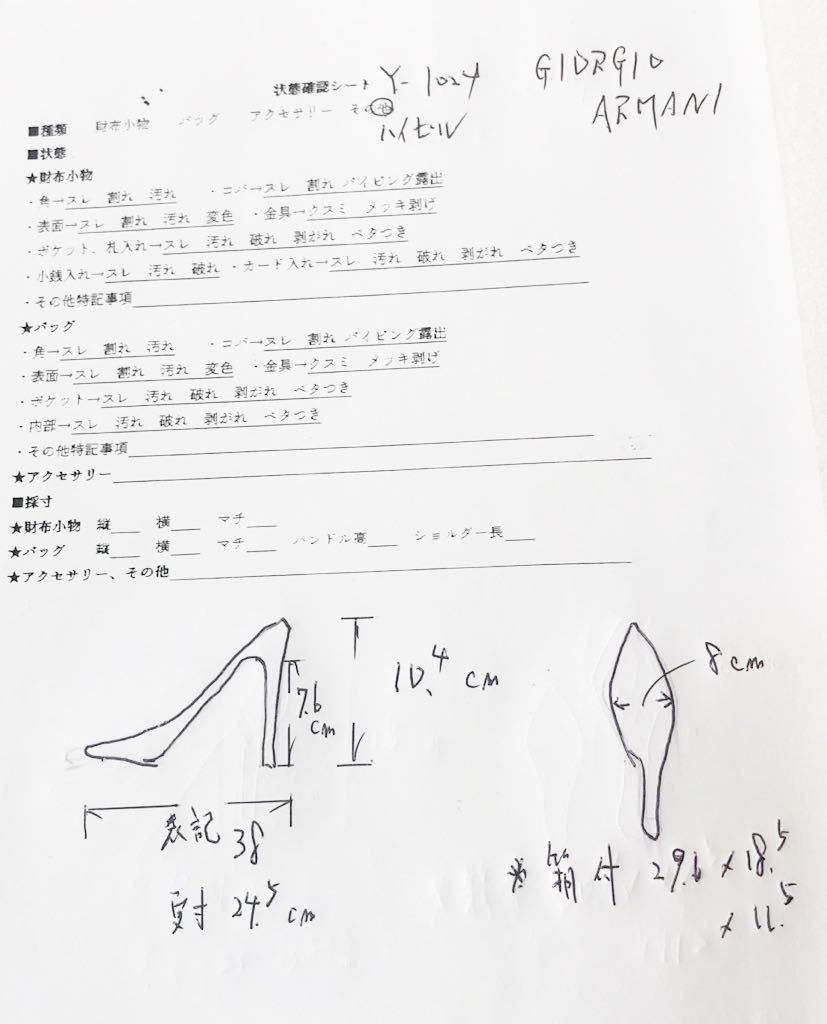 状態確認シート Y-1024 GIORGIO
ARMANI
■種類 財布小物 バッグ アクセサリー その他
ハイヒール
■状態
★財布小物
・角→スレ 割れ 汚れ ・コバ→スレ 割れ パイピング露出
・表面→スレ 割れ 汚れ 変色 ・金具→クスミ メッキ剥げ
・ポケット、札入れ→スレ 汚れ 破れ 剥がれ ベタつき
・小銭入れ→スレ 汚れ 破れ ・カード入れ→スレ 汚れ 破れ 剥がれ ベタつき
・その他特記事項
★バッグ
・角→スレ 割れ 汚れ ・コバ→スレ 割れ パイピング露出
・表面→スレ 割れ 汚れ 変色 ・金具→クスミ メッキ剥げ
・ポケット→スレ 汚れ 破れ 剥がれ ベタつき
・内部→スレ 汚れ 破れ 剥がれ ベタつき
・その他特記事項
★アクセサリー
■採寸
★財布小物 縦 横 マチ
★バッグ 縦 横 マチ ハンドル高 ショルダー長
★アクセサリー、その他
7.6
cm
10.4 cm
8cm
表記 38
実寸 24.5cm
※箱付 29.6×18.5
×11.5